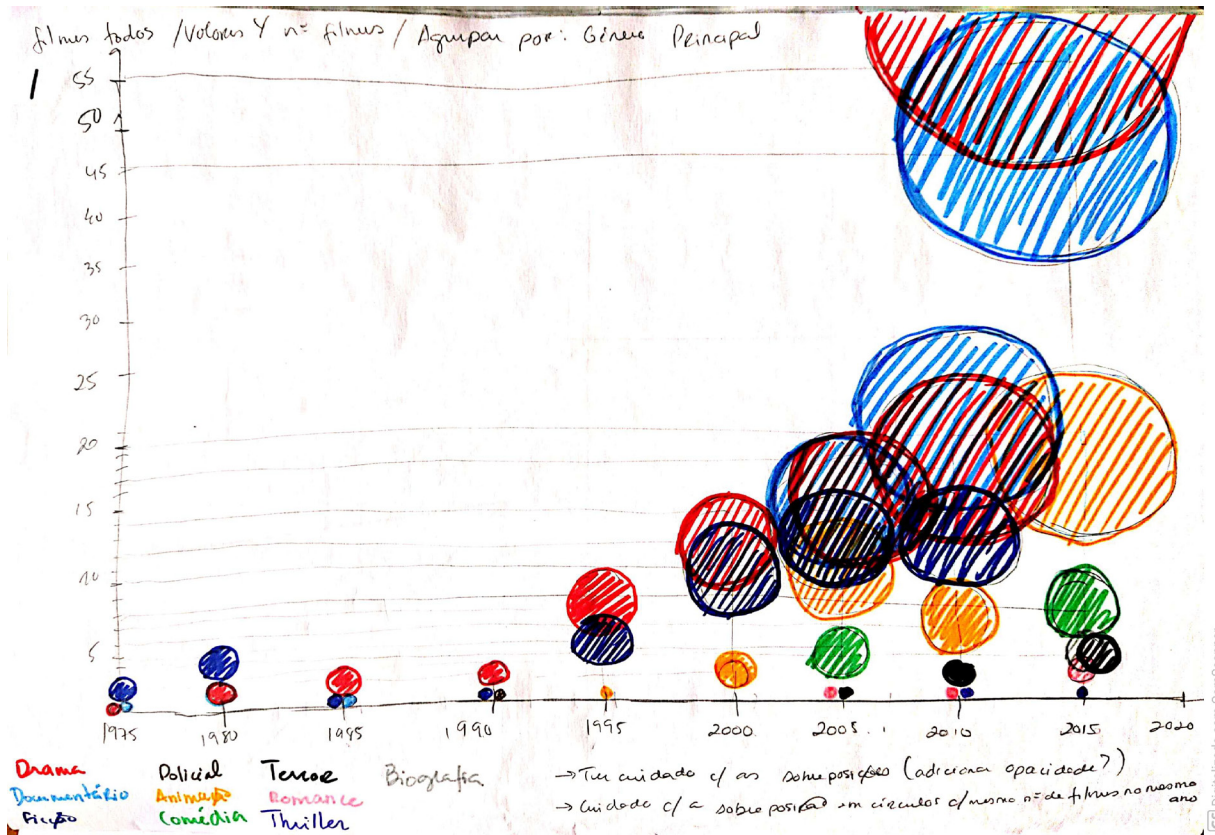 filmes todos / Valores Y nº filmes / Agrupar por: Género Principal
1
55
50
45
40
35
30
25
20
15
10
5
1975 1980 1985 1990 1995 2000 2005 2010 2015 2020
Drama Policial Terror Biografia
Documentário Animação Romance
Ficção Comédia Thriller
→ Ter cuidado c/ as sobreposições (adicionar opacidade?)
→ Cuidado c/ a sobreposição em círculos c/ mesmo nº de filmes no mesmo
ano